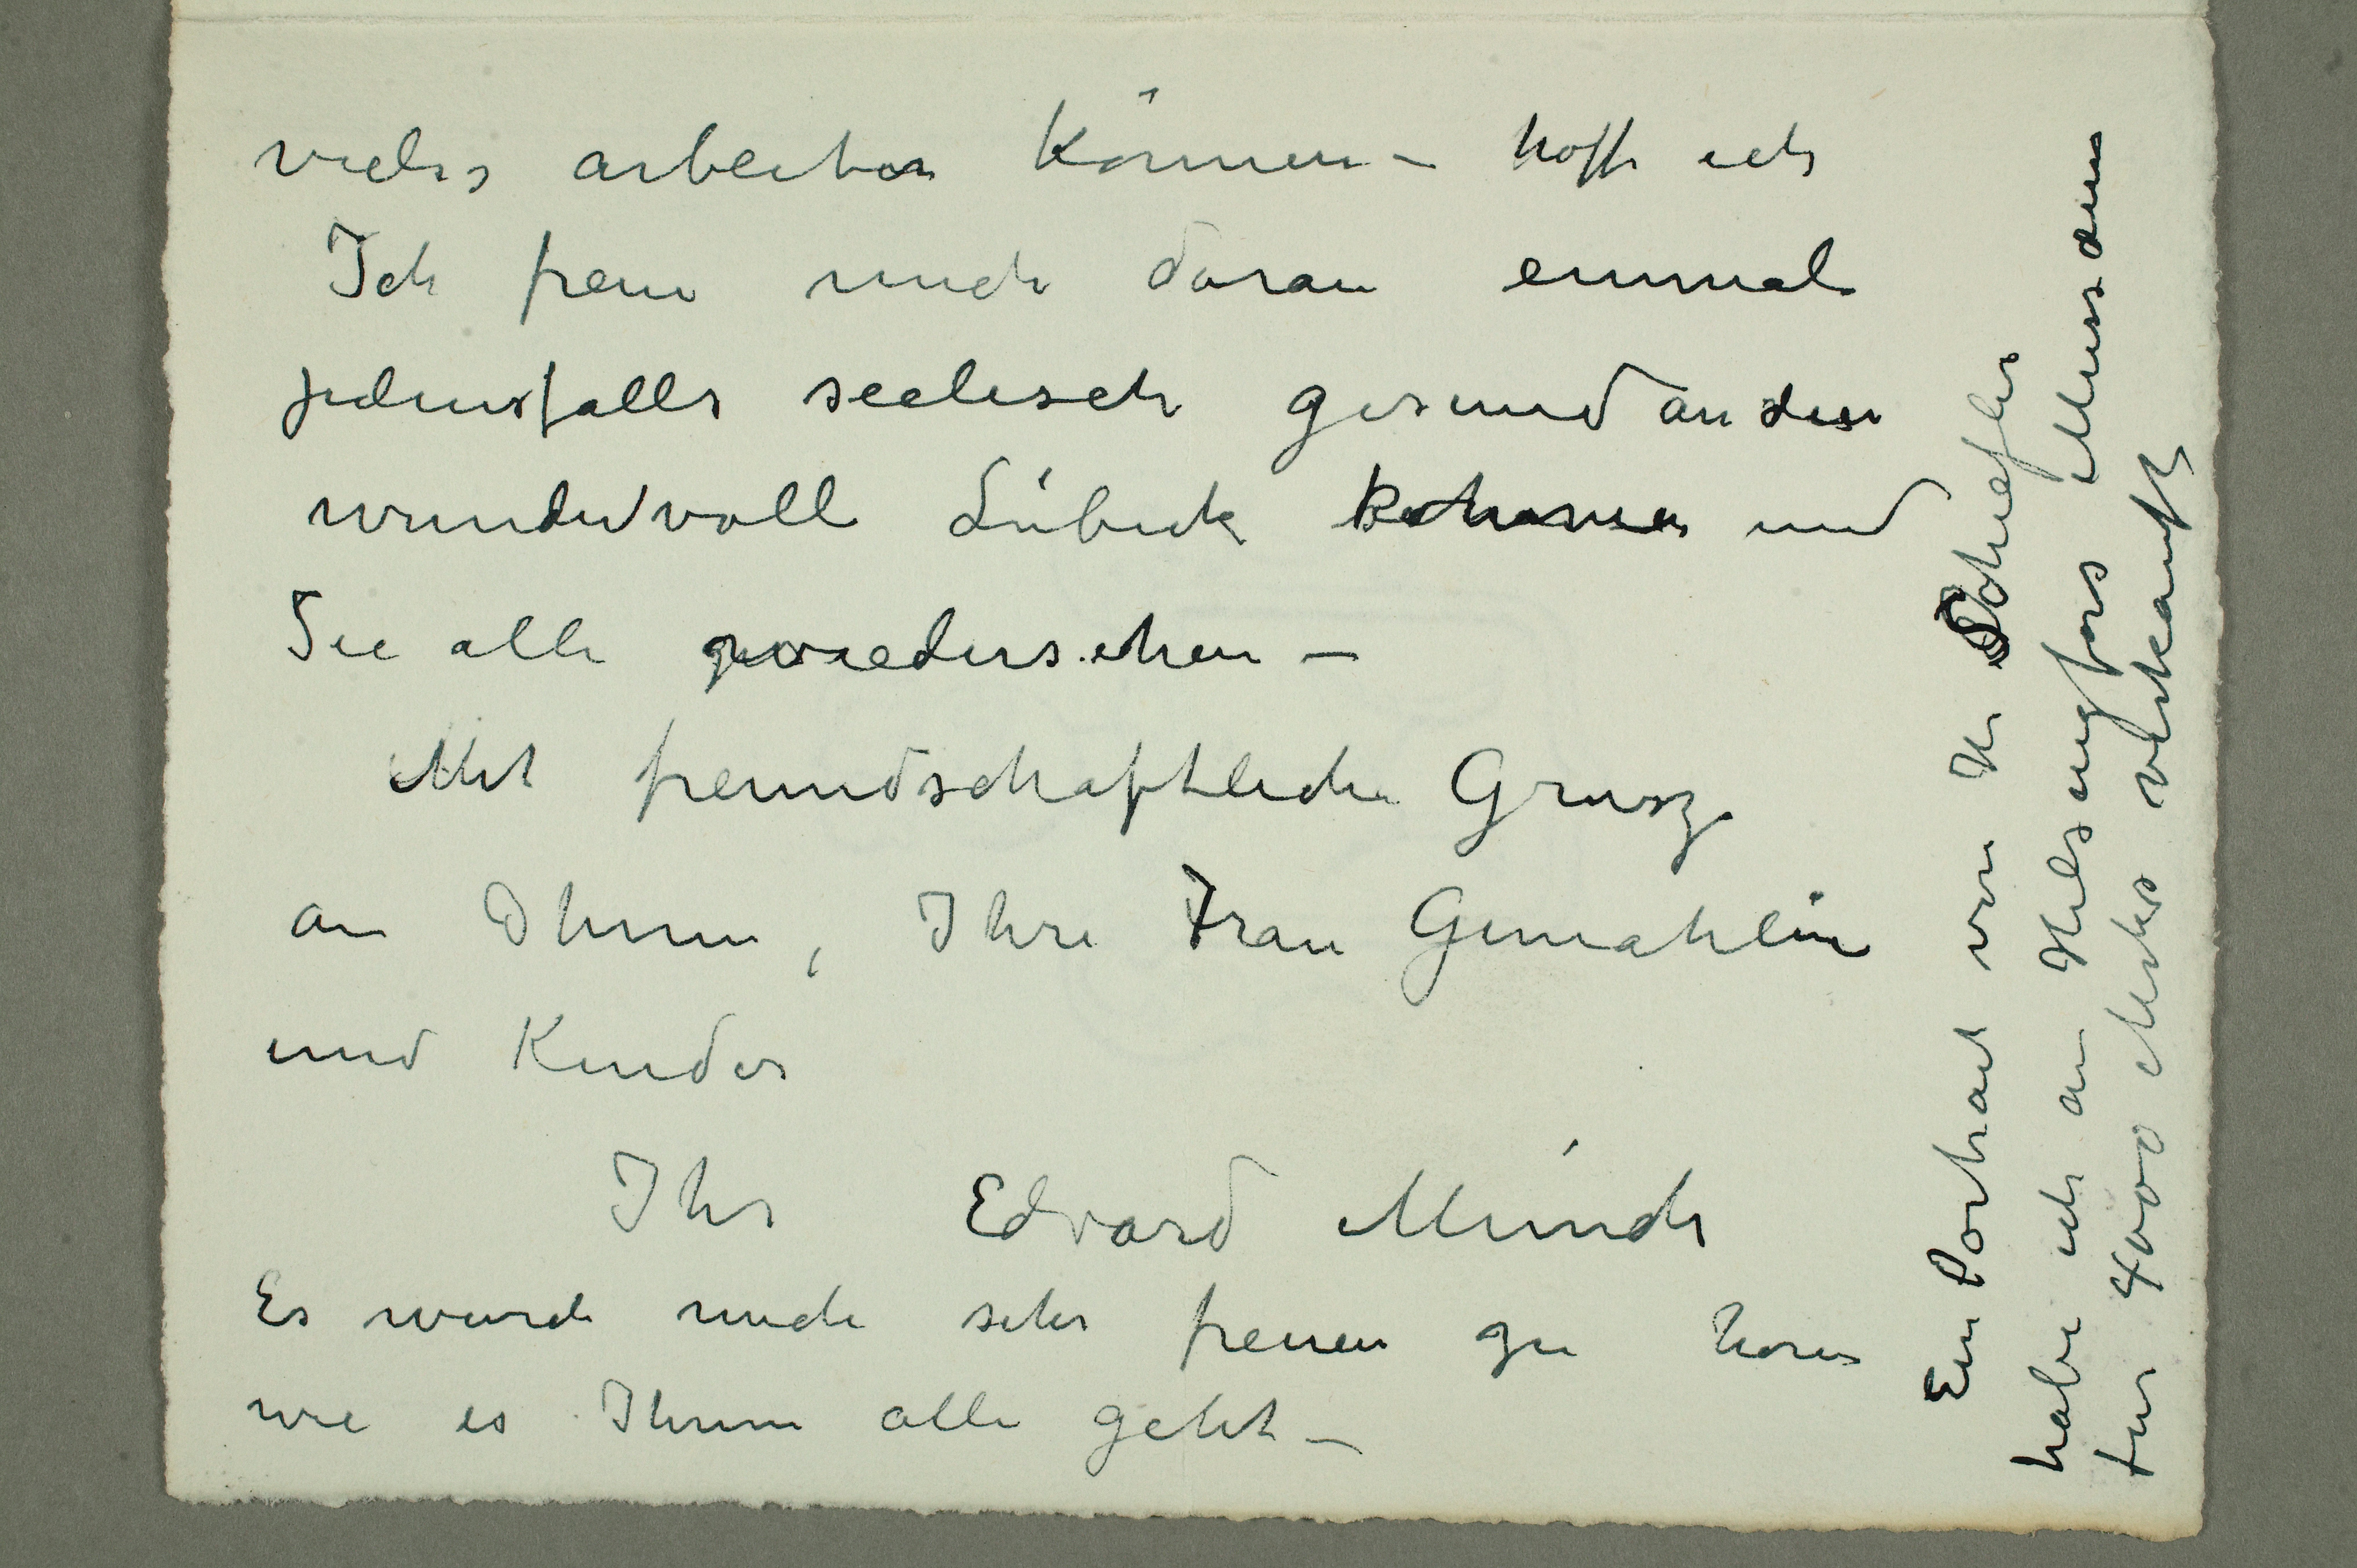 vieles arbeiten können – hoffe ich
Ich freue mich daran einmal
jedensfalls seelisch gesund an den
wundervoll Lübeck kommen und
Sie alle wiedersehen –
Mit freundschaftliche Grusz
an Ihnen, Ihre Frau Gemahlin
und Kinder
Ihr Edvard Munch
Es wurde mich sehr freuen zu horen
wie es Ihnen alle geht –
Ein Portrait von H Schiefler
habe ich an Helsingfors Musæum
fur 4000 Marks verkauft